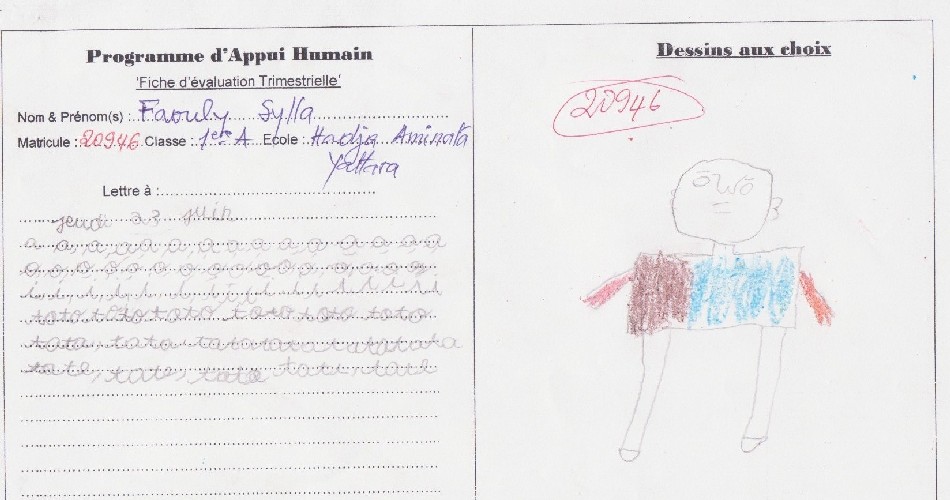 Programme d'Appui Humain
'Fiche d'évaluation Trimestrielle'
Nom & Prénom(s) : Faouly Sylla
Matricule : 20946 Classe : 1ère A Ecole : Hadja Aminata
Yattara
Lettre à :
jeudi 23 juin
a a a a a a a a a a a a a a
o o o o o o o o o o o o o
i i i i i i i i i i i i i i
toto toto toto toto toto toto
tata, tata
tate, tate, tate tate, tate
Dessins aux choix
20946